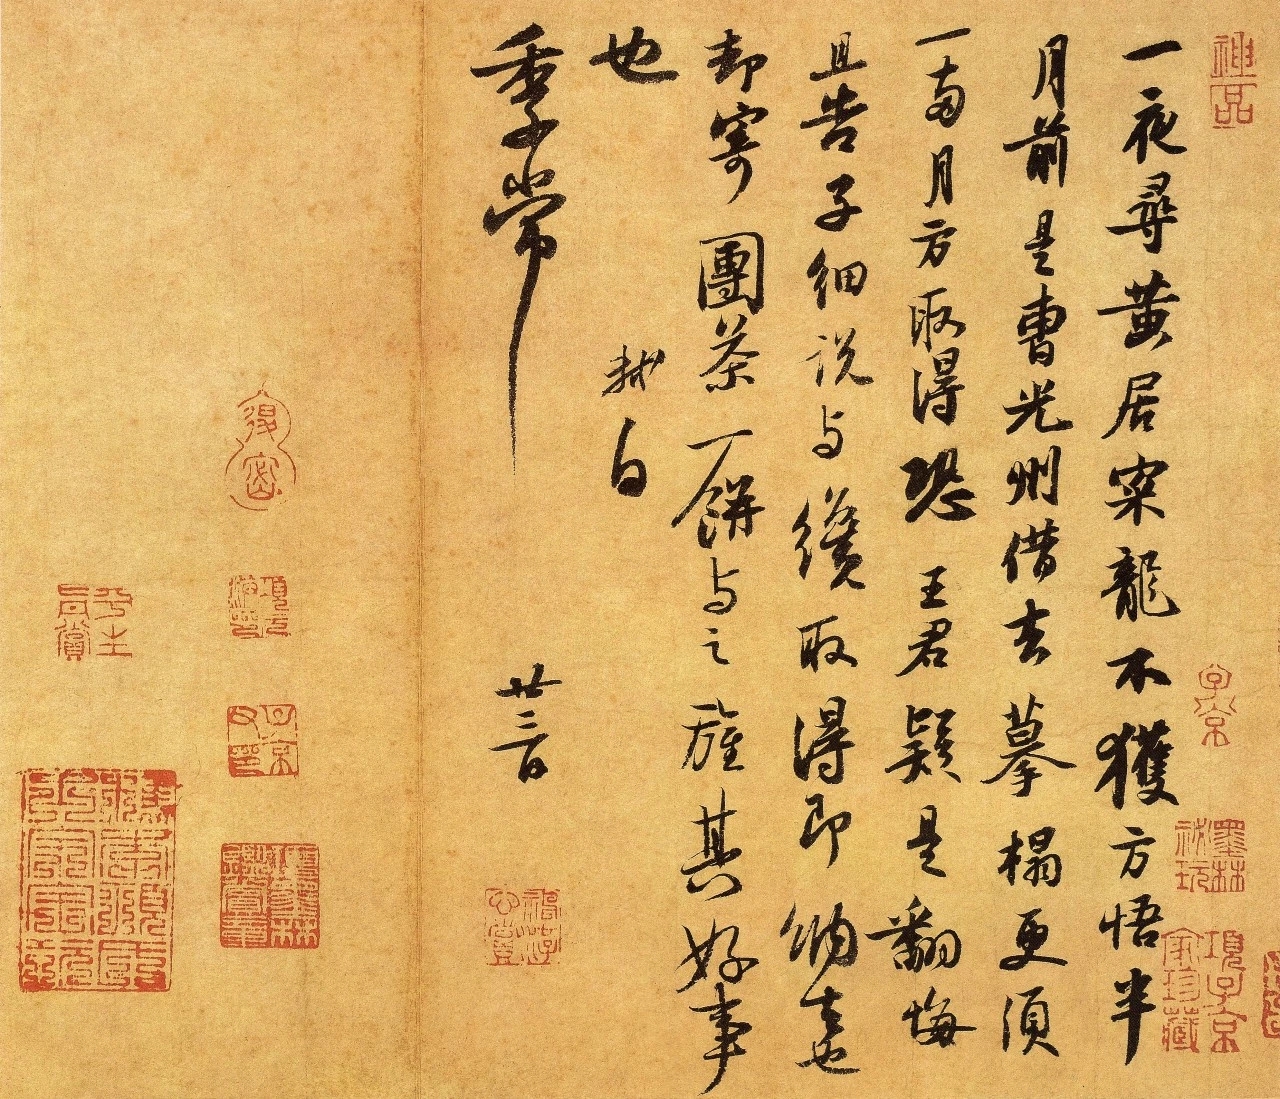 一夜尋黃居寀龍不獲方悟半
月前是曹光州借去摹榻更須
一兩月方取得恐王君疑是翻悔
且告子細說与纔取得即納去也
却寄團茶一餅与之旌其好事
也
軾白
季常
廿三日
神品
子京
墨林祕玩
項子京家珍藏
平生真賞
項元汴印
子京父印